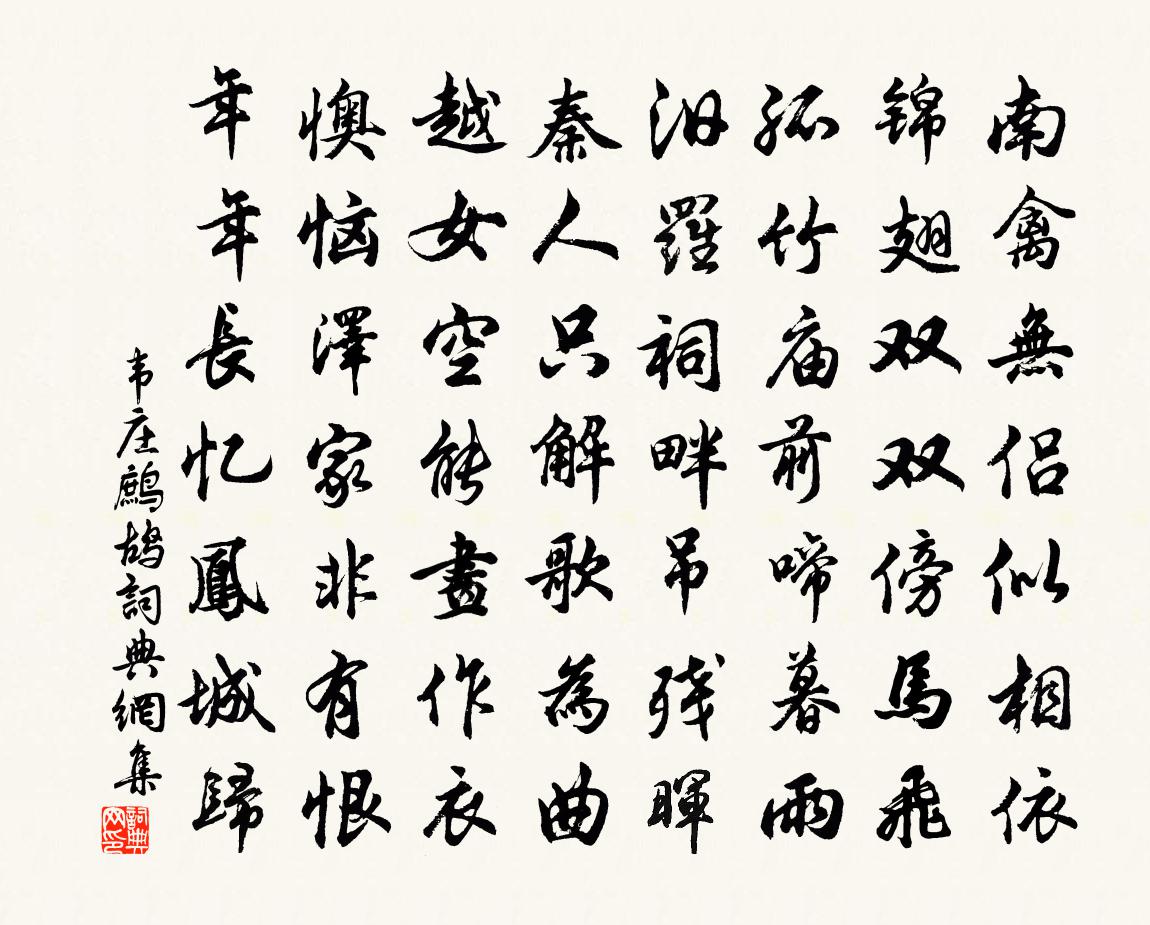 南禽無侶似相依
锦翅双双傍馬飛
孤竹庙前啼暮雨
汨羅祠畔吊残暉
秦人只解歌為曲
越女空能畫作衣
懊恼澤家非有恨
年年長忆鳳城歸
韦庄鷓鸪詞典網集
詞典网印